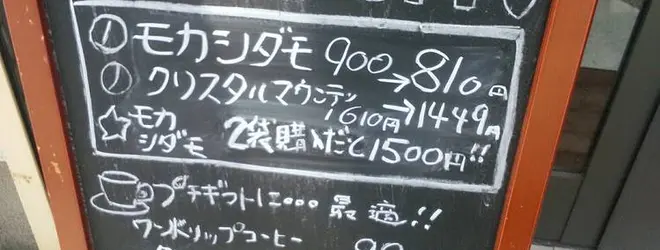 ① モカシダモ 900→810円
② クリスタルマウンテン
1610円→1449円
☆ モカ
シダモ 2袋購入だと1500円!!
プチギフトに... 最適!!
ワンドリップコーヒー